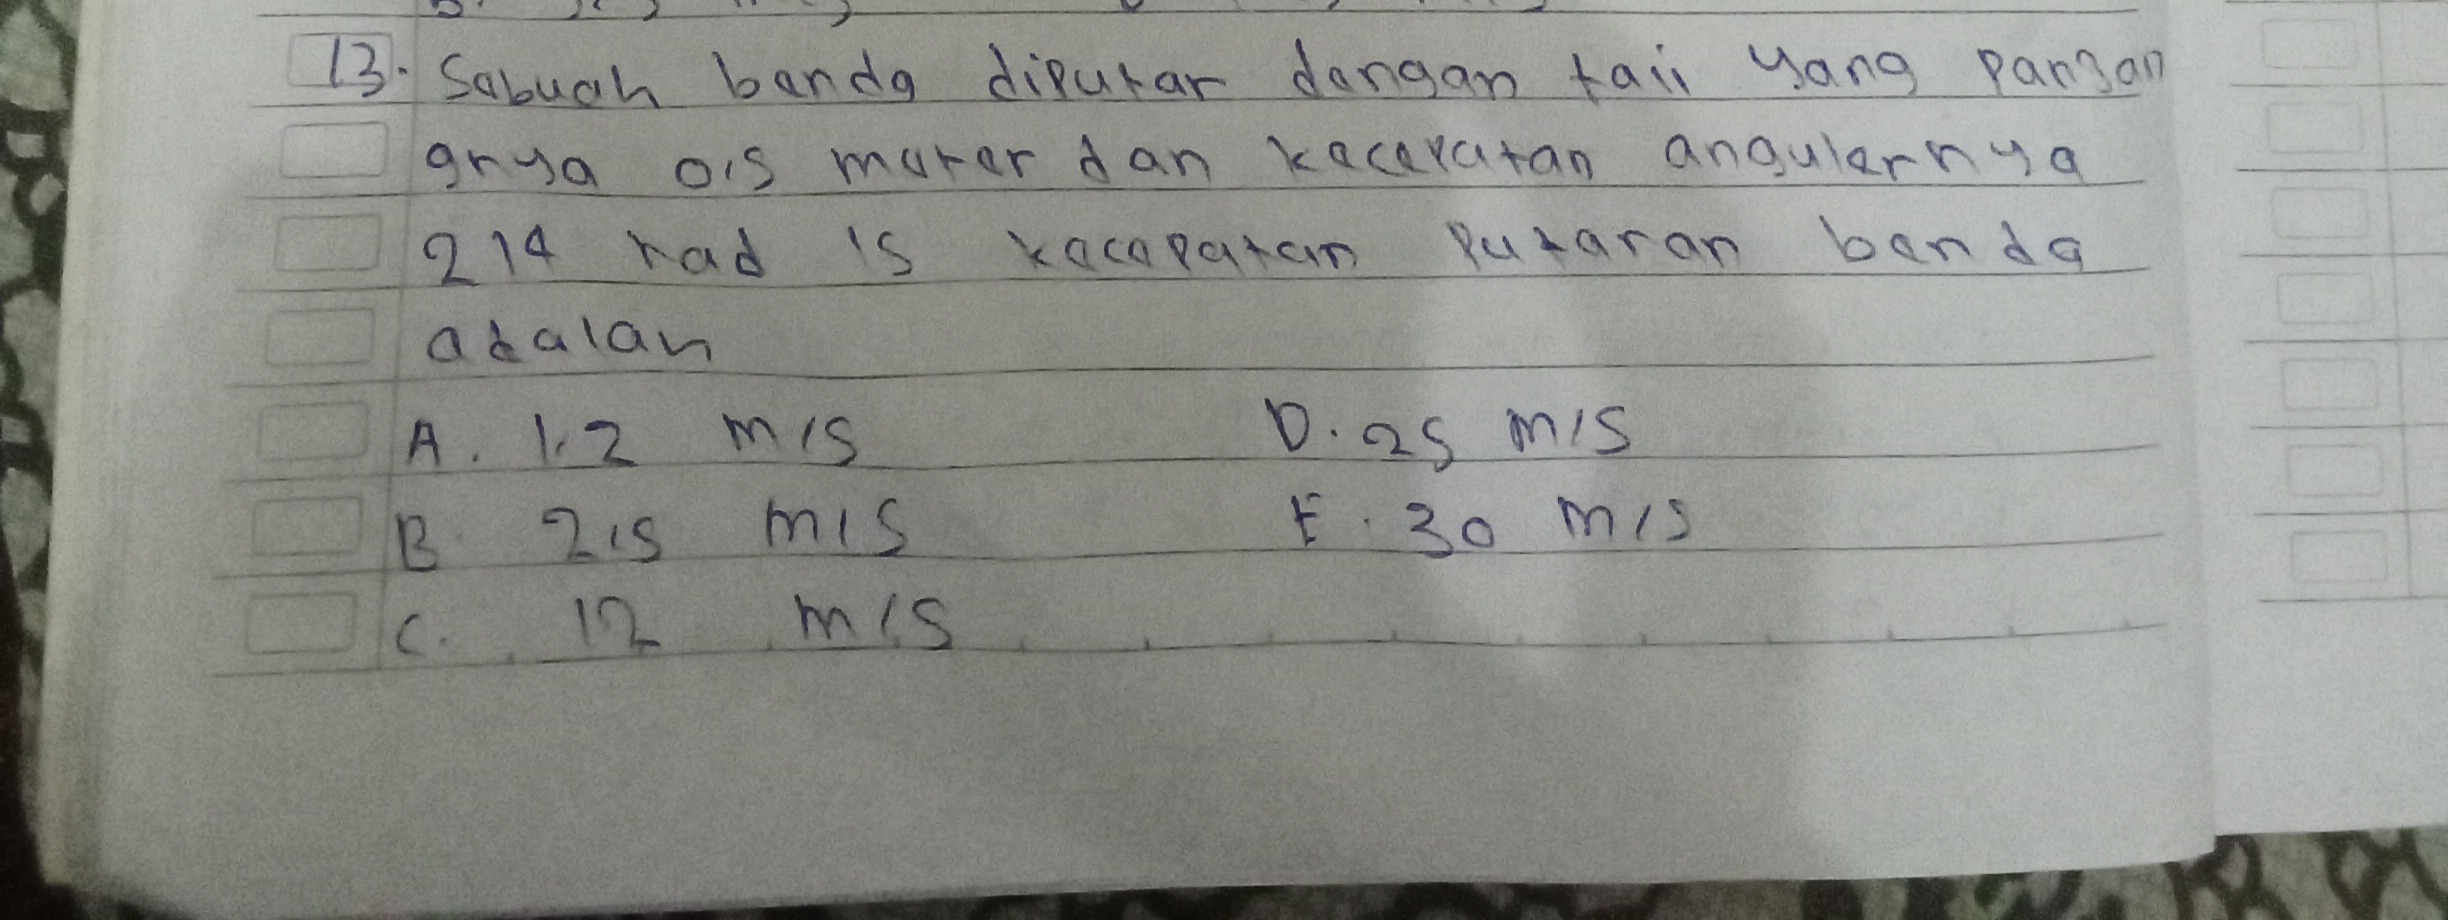 13. Sebuah benda diputar dengan tali yang panjan
gnya 0,5 meter dan kecepatan angulernya
2,4 rad /s kecepatan putaran benda
adalah
A. 1,2 m/s D. 25 m/s
B. 2,5 m/s E. 30 m/s
C. 12 m/s